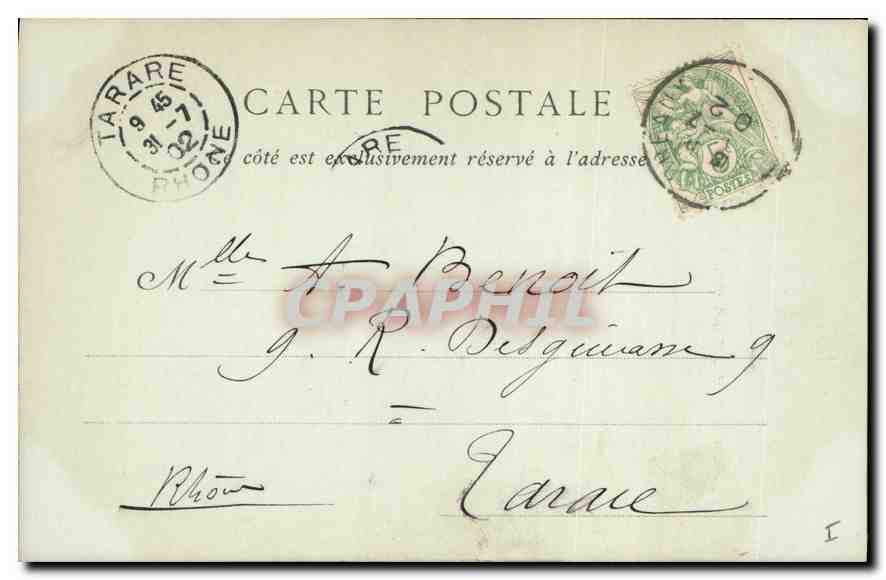 TARARE
9 45
31 - 7
02
RHONE
CARTE POSTALE
Ce côté est exclusivement réservé à l'adresse
ARE
5
POSTES
Mlle A. Benoit
CPAPHIL
9. R. Desguirasse 9
Tarare
Rhône
I